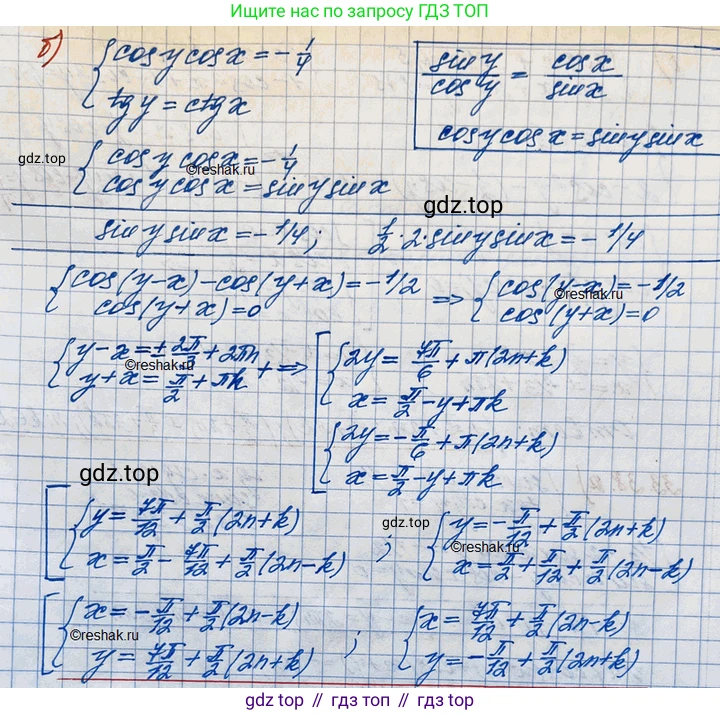 Ищите нас по запросу ГДЗ ТОП
б) { cos y cos x = - 1/4
tg y = ctg x
sin y / cos y = cos x / sin x
cos y cos x = sin y sin x
gdz.top
{ cos y cos x = - 1/4
©reshak.ru
cos y cos x = sin y sin x
gdz.top
sin y sin x = - 1/4 ; 1/2 · 2 · sin y sin x = - 1/4
{ cos(y-x) - cos(y+x) = - 1/2
cos(y+x) = 0
=> { cos(y-x) = - 1/2
©reshak.ru
cos(y+x) = 0
{ y - x = ± 2π/3 + 2πn
©reshak.ru
y + x = π/2 + πk
+ => [ { 2y = 7π/6 + π(2n+k)
x = π/2 - y + πk
{ 2y = - π/6 + π(2n+k)
x = π/2 - y + πk
gdz.top
[ { y = 7π/12 + π/2 (2n+k)
x = π/2 - 7π/12 + π/2 (2n-k)
gdz.top
; { y = - π/12 + π/2 (2n+k)
©reshak.ru
x = π/2 + π/12 + π/2 (2n-k)
[ { x = - π/12 + π/2 (2n-k)
©reshak.ru
y = 7π/12 + π/2 (2n+k)
; { x = 7π/12 + π/2 (2n-k)
y = - π/12 + π/2 (2n+k)
gdz.top // гдз топ // gdz.top